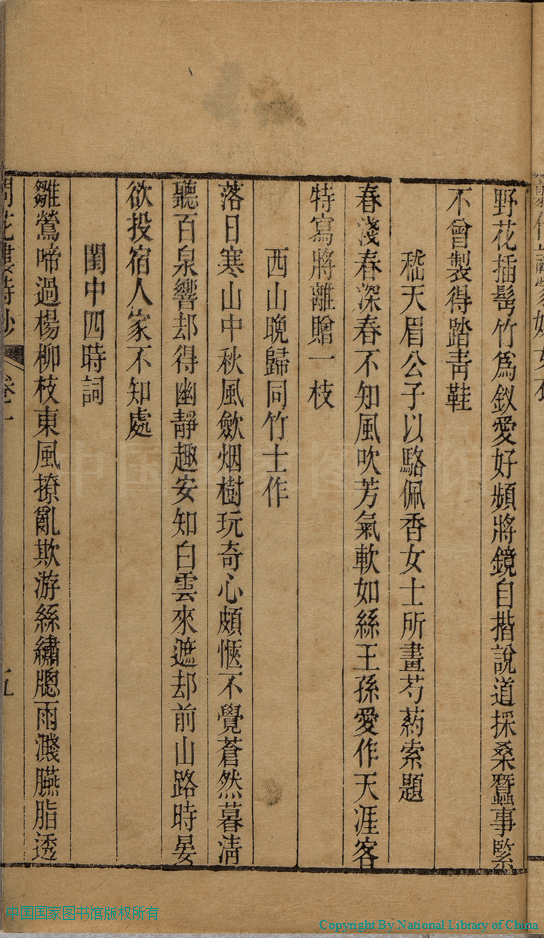 野花插髩竹爲釵愛好頻將鏡自揩說道採桑蠶事緊
不會製得踏靑鞋
嵇天眉公子以駱佩香女士所畫芍葯索題
春淺春深春不知風吹芳氣軟如絲王孫愛作天涯客
特寫將離贈一枝
西山晚歸同竹士作
落日寒山中秋風斂烟樹玩奇心頗愜不覺蒼然暮淸
聽百泉響却得幽靜趣安知白雲來遮却前山路時晏
欲投宿人家不知處
閨中四時詞
雛鶯啼過楊柳枝東風撩亂欺游絲繡牕雨濺臙脂透
卷一
五
中国国家图书馆版权所有
Copyright By National Library of China